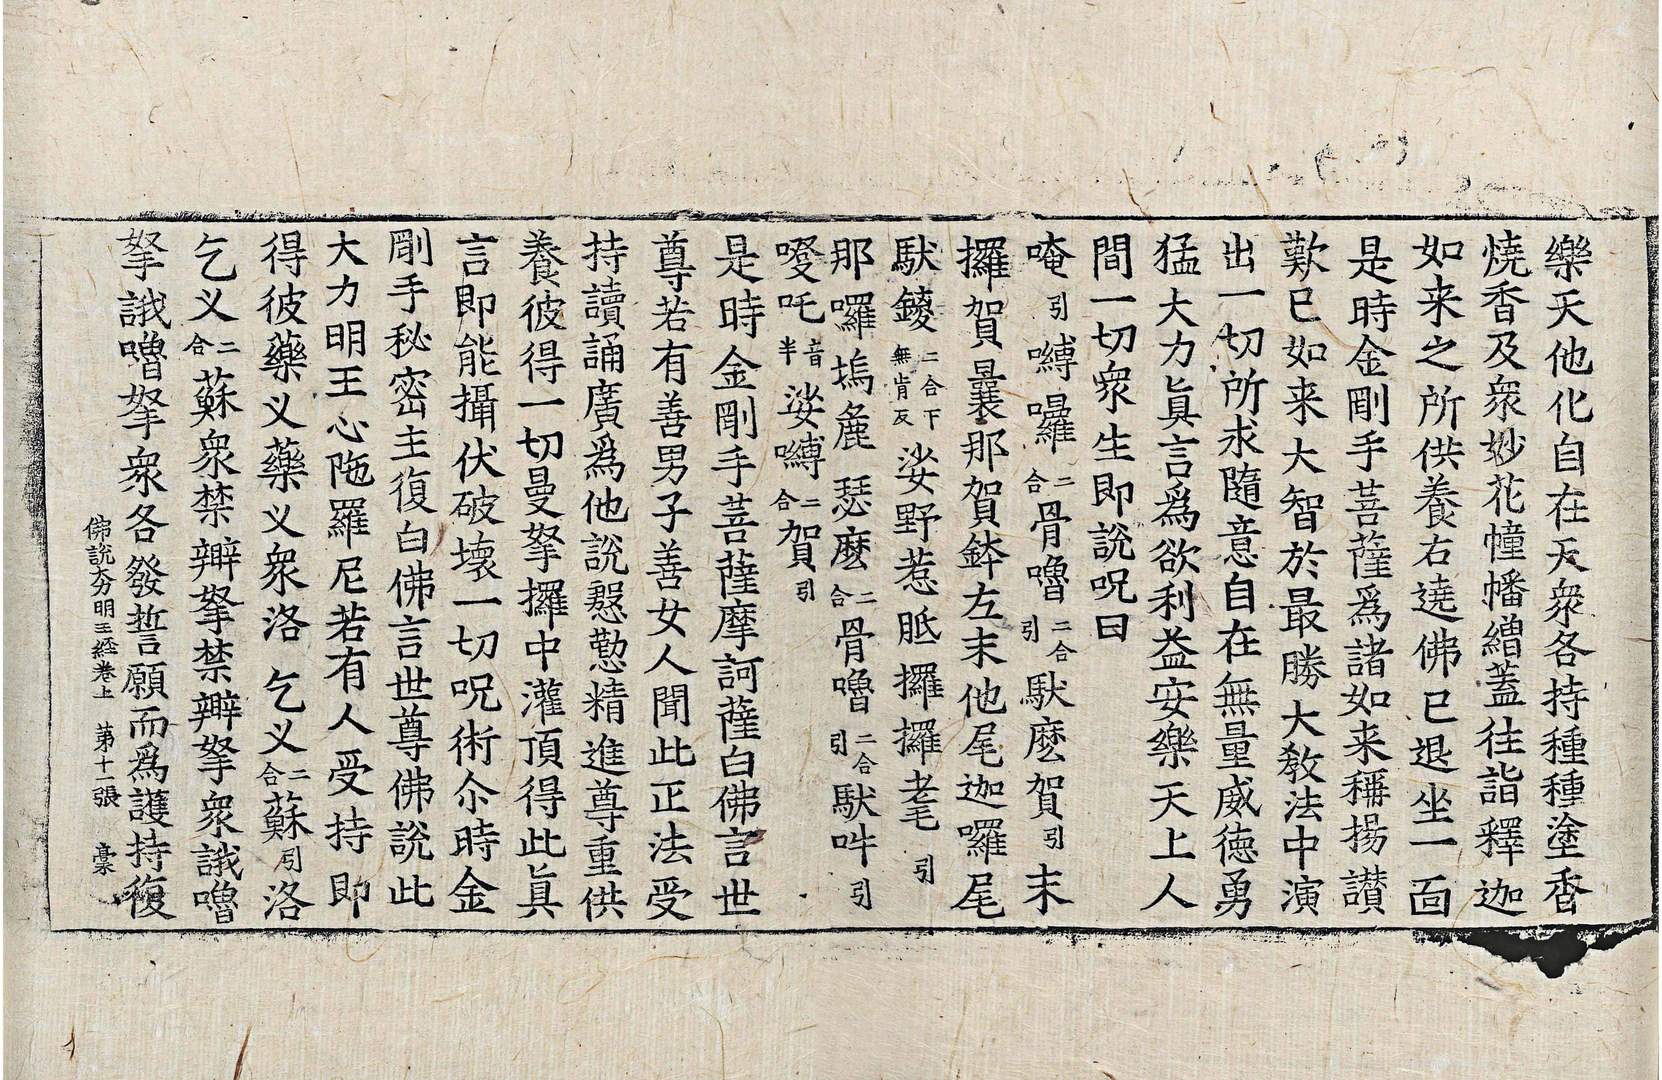 樂天他化自在天衆各持種種塗香
燒香及衆妙花幢幡繒蓋往詣釋迦
如来之所供養右遶佛已退坐一面
是時金剛手菩薩爲諸如来稱揚讃
歎已如来大智於最勝大教法中演
出一切所求隨意自在無量威德勇
猛大力眞言爲欲利益安樂天上人
間一切衆生即說呪曰
唵引嚩囉二合骨嚕二合引馱麽賀引末
攞賀曩那賀鉢左末他尾迦囉尾
馱鑁二合下無肯反娑野惹胝攞攞耄引
那囉塢麁瑟麽二合骨嚕二合引馱吽引
嗄吒半音娑嚩二合賀引
是時金剛手菩薩摩訶薩白佛言世
尊若有善男子善女人聞此正法受
持讀誦廣爲他說慇懃精進尊重供
養彼得一切曼拏攞中灌頂得此眞
言即能攝伏破壞一切呪術尒時金
剛手秘密主復白佛言世尊佛說此
大力明王心陁羅尼若有人受持即
得彼藥义藥义衆洛乞义二合蘇引洛
乞义二合蘇衆禁辢拏禁辢拏衆誐嚕
拏誐嚕拏衆各發誓願而爲護持復
佛說大力明王經卷上 第十一張 槀